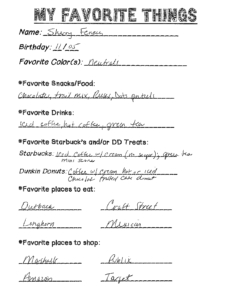 MY FAVORITE THINGS
Name: Sherry
Birthday: 11/05
Favorite Color(s): neutrals
*Favorite Snacks/Food:
Chocolate, trail mix,
*Favorite Drinks:
iced coffee, hot coffee, green tea
*Favorite Starbuck's and/or DD Treats:
Starbucks: iced coffee w/ cream (no sugar), green tea
Dunkin Donuts: Coffee w/ cream hot or iced
Chocolate frosted cake donut
*Favorite places to eat:
Craft Street
Longhorn Mexican
*Favorite places to shop:
Marshalls Publix
Amazon Target